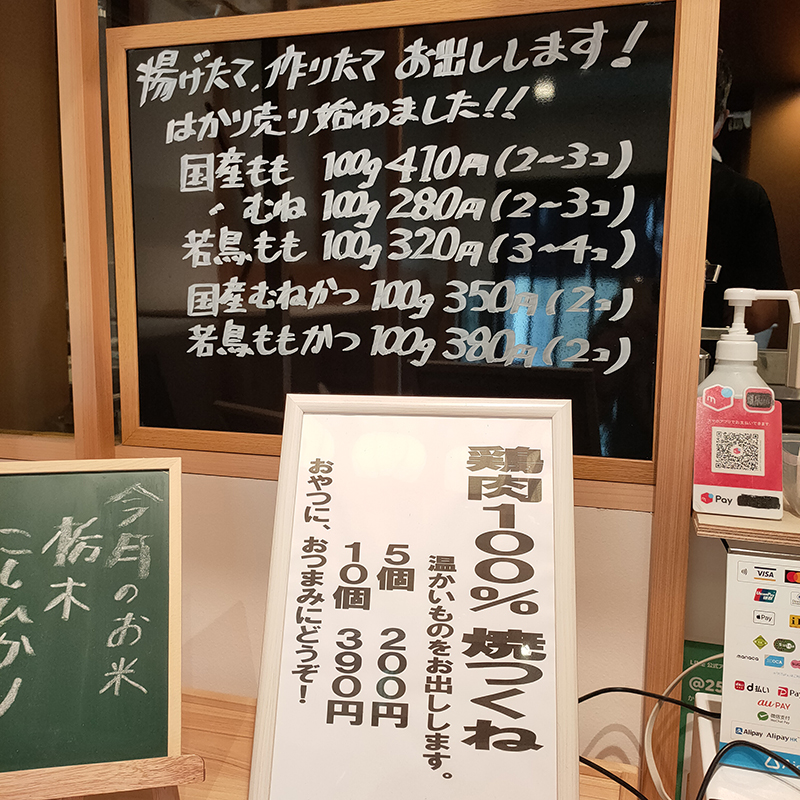 揚げたて、作りたて お出しします!
はかり売り始めました!!
国産もも 100g 410円(2~3コ)
〃 むね 100g 280円(2~3コ)
若鳥もも 100g 320円(3~4コ)
国産むねかつ 100g 350円(2コ)
若鳥ももかつ 100g 380円(2コ)
鶏肉100% 焼つくね
温かいものをお出しします。
5個 200円
10個 390円
おやつに、おつまみにどうぞ!
今月のお米
栃木
こしひかり
Pay
VISA
Pay
manaca
d払い
au PAY
Alipay
Alipay HK
@25